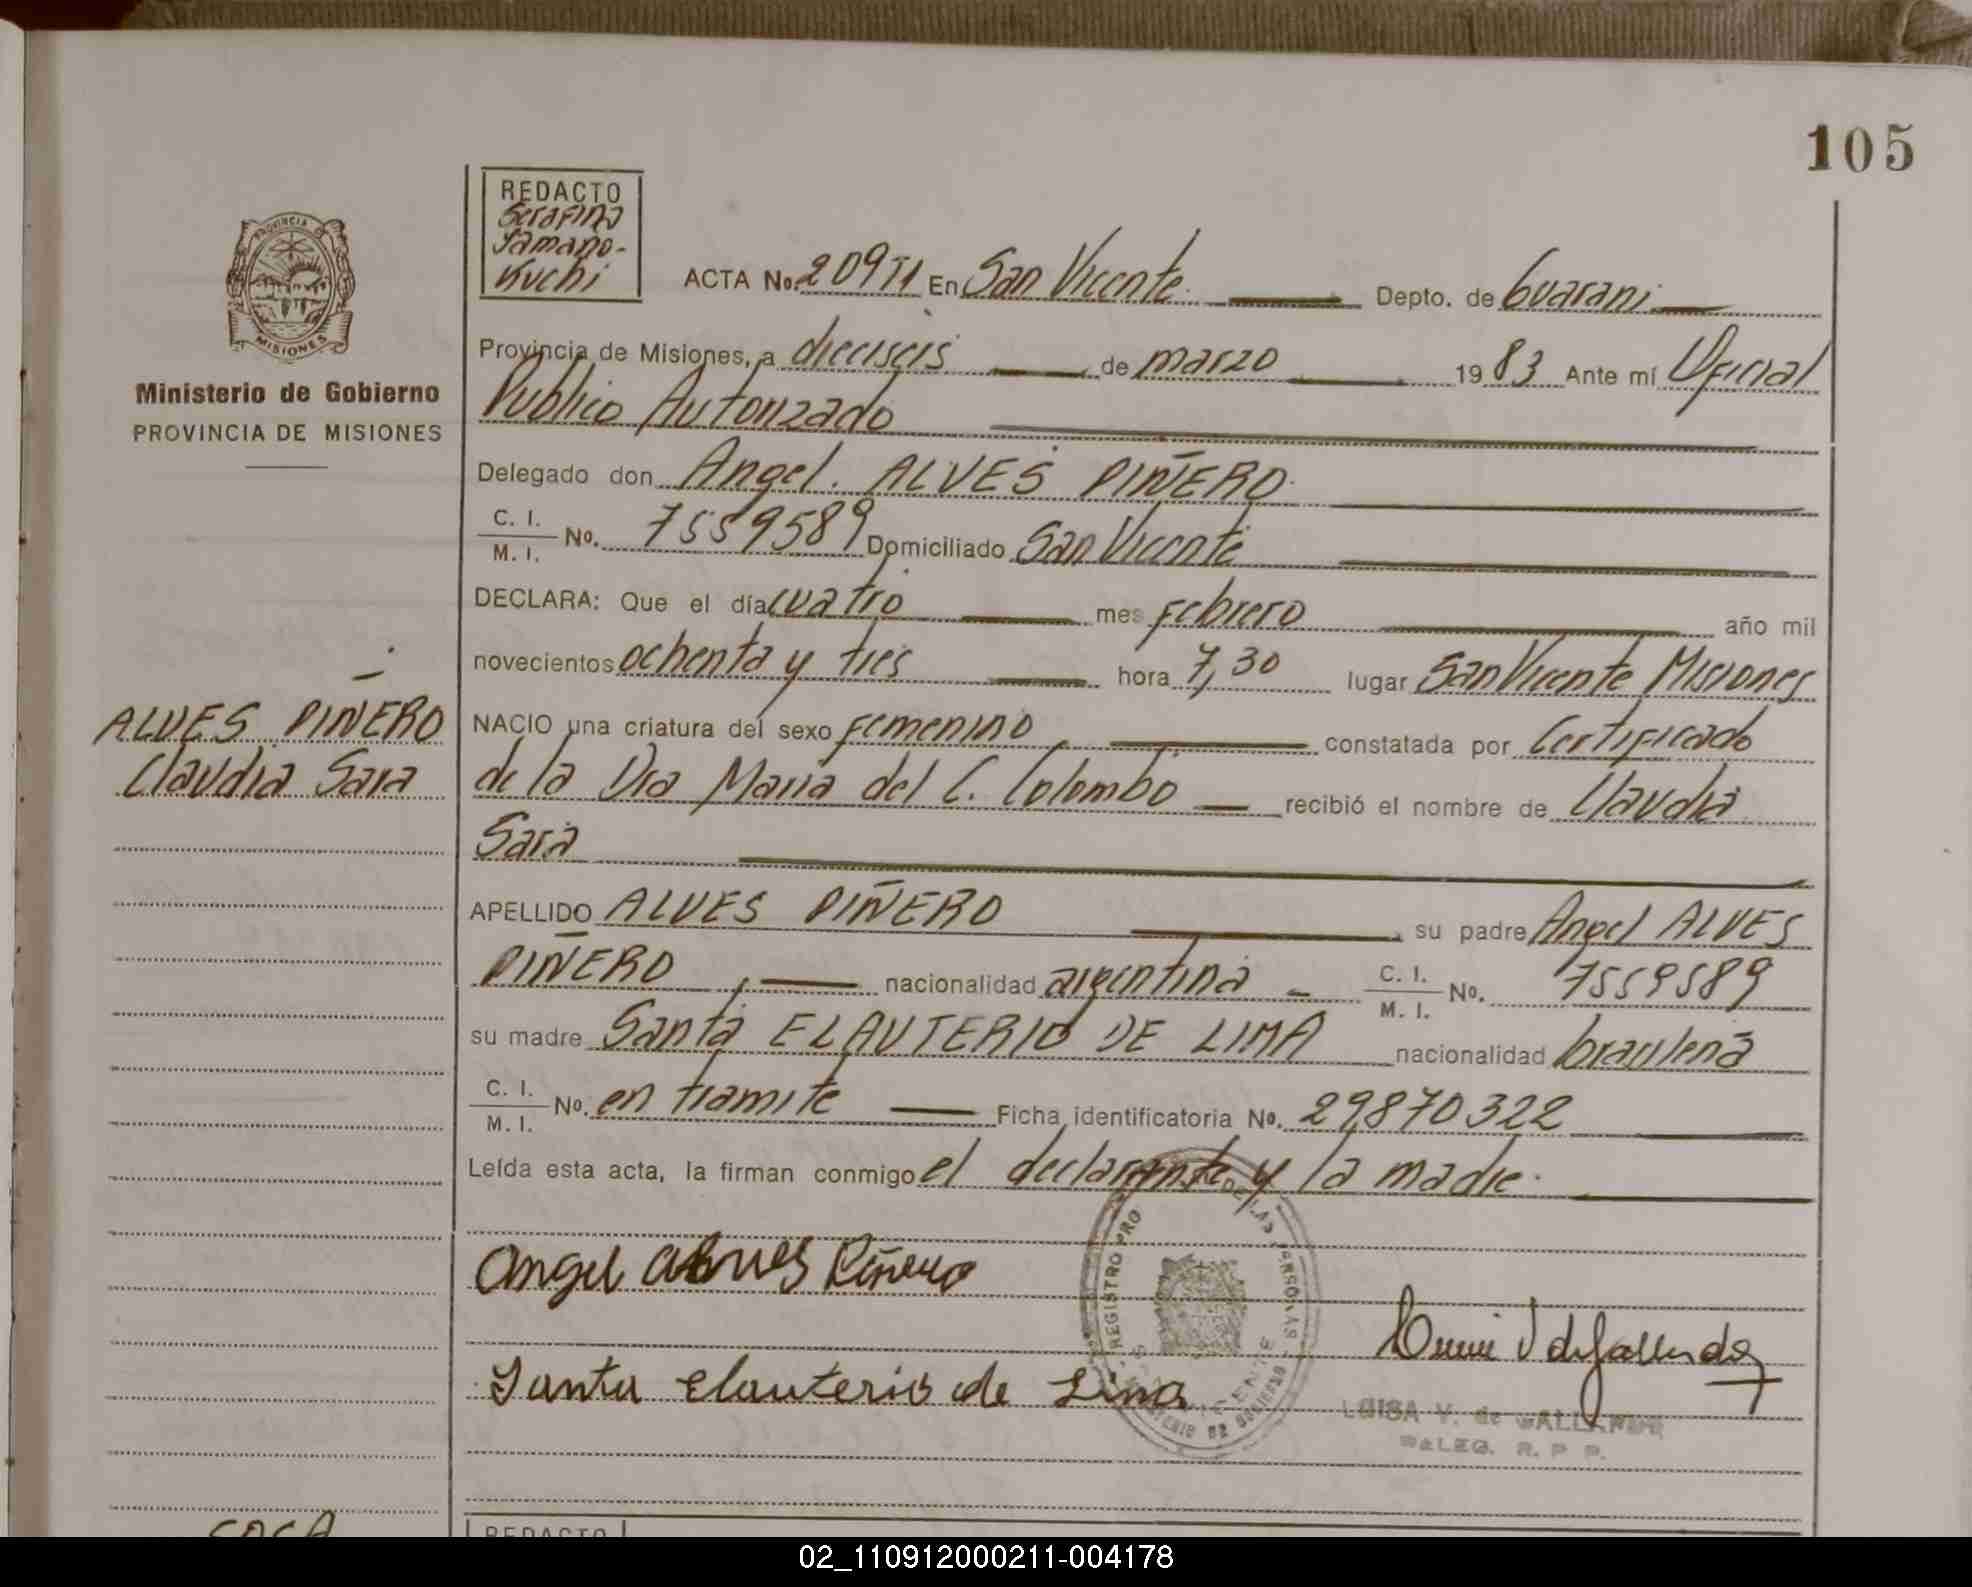 105
REDACTO
Serafina
Yamano-
Kuchi
PROVINCIA DE
MISIONES
Ministerio de Gobierno
PROVINCIA DE MISIONES
ACTA No. 209 T1 En San Vicente Depto. de Guarani
Provincia de Misiones, a dieciseis de marzo 1983 Ante mí Oficial
Publico Autorizado
Delegado don Angel. ALVES PIÑERO
C. I.
M. I. No. 7559589 Domiciliado San Vicente
DECLARA: Que el día cuatro mes febrero año mil
novecientos ochenta y tres hora 7,30 lugar San Vicente Misiones
ALVES PIÑERO
Claudia Sara
NACIO una criatura del sexo femenino constatada por Certificado
de la Dra Maria del C. Colombo recibió el nombre de Claudia
Sara
APELLIDO ALVES PIÑERO su padre Angel ALVES
PIÑERO, nacionalidad argentina C. I.
M. I. No. 7559589
su madre Santa ELAUTERIO DE LIMA nacionalidad brasileña
C. I.
M. I. No. en tramite Ficha identificatoria No. 29870322
Leída esta acta, la firman conmigo el declarante y la madre.
Angel Piñero
Santa Elauterio de Lima
REGISTRO PRO DE LAS PERSONAS
LUISA V. de
DELEG. R. P. P.
REDACTO
02_110912000211-004178